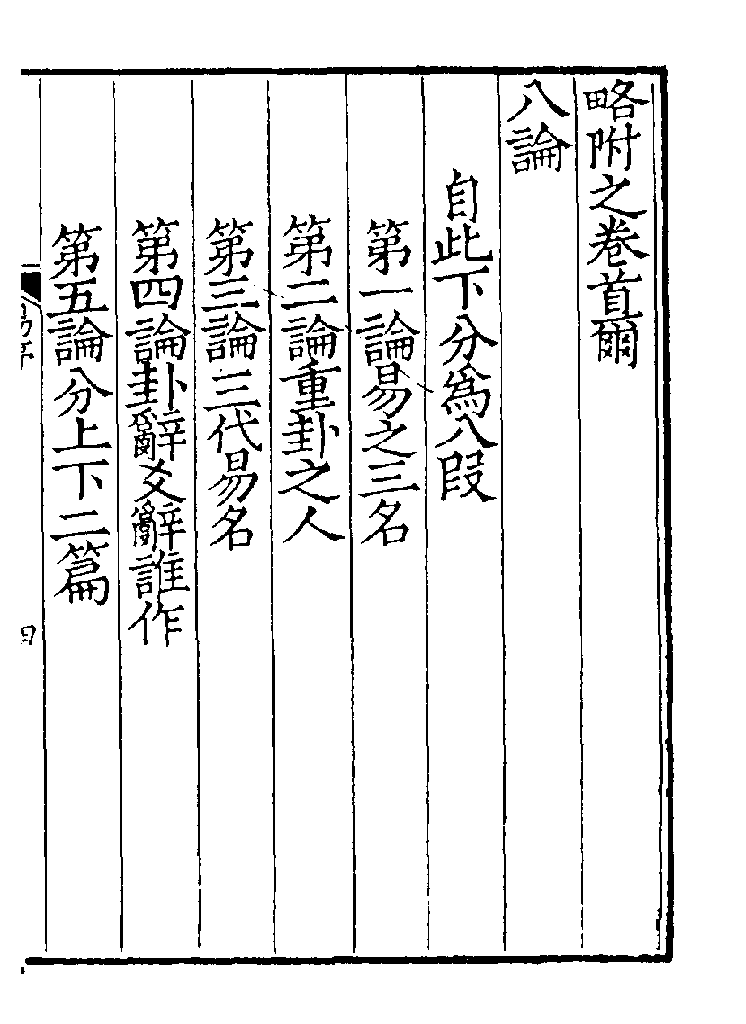 略附之卷首爾
八論
自此下分為八段
第一論易之三名
第二論重卦之人
第三論三代易名
第四論卦辭爻辭誰作
第五論分上下二篇
四